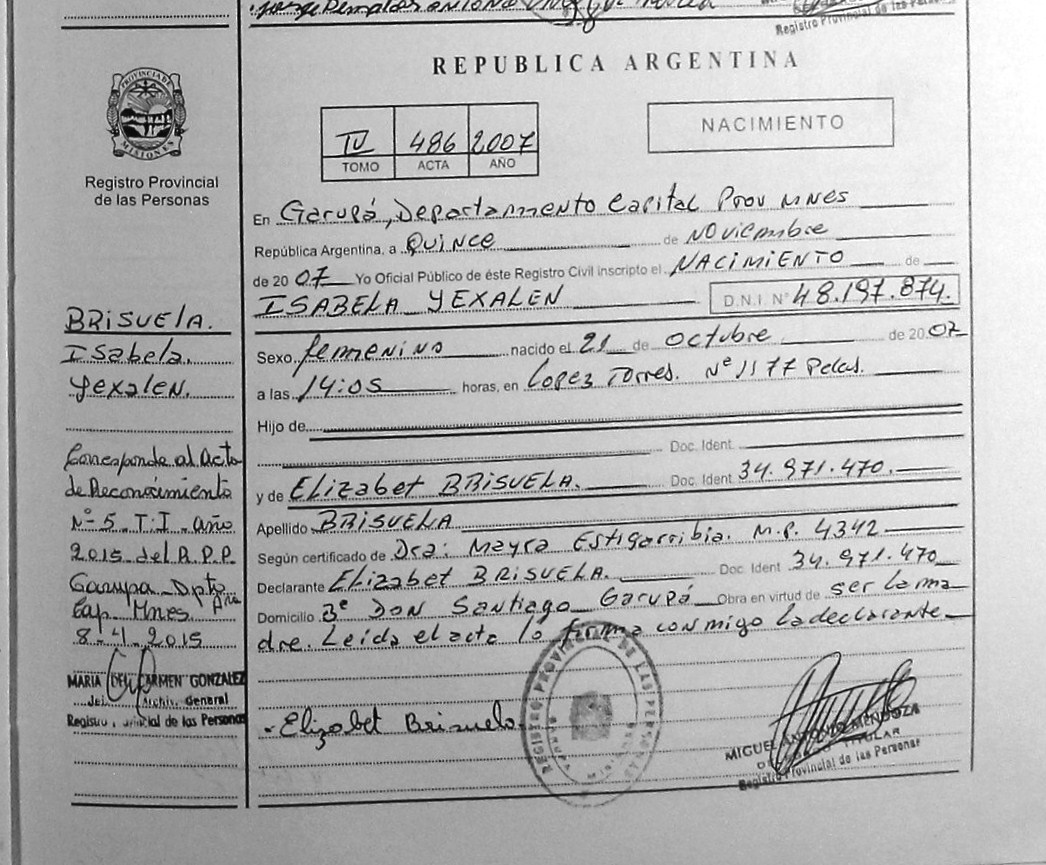 Registro Provincial de las Personas
REPUBLICA ARGENTINA
PROVINCIA DE MISIONES
Registro Provincial
de las Personas
IV 486 2007
TOMO ACTA AÑO
NACIMIENTO
En Garupá, Departamento Capital Prov MNES
República Argentina, a QUINCE de NOViembre
de 2007 Yo Oficial Público de éste Registro Civil inscripto el NACIMIENTO de
ISABELA YEXALEN D.N.I. Nº 48.197.874.
Sexo, femenino nacido el 21 de octubre de 2007
a las 14:05 horas, en Lopez Torres. Nº 1177 Pdas.
Hijo de
Doc. Ident.
y de Elizabet BRISUELA. Doc. Ident 34.971.470.
Apellido BRISUELA
Según certificado de Dra: Mayra Estigarribia. M.P. 4342
Declarante Elizabet BRISUELA. Doc. Ident 34.971.470
Domicilio Bº DON Santiago Garupá Obra en virtud de ser la ma
dre. Leída el acta lo firma conmigo la declarante
Elizabet Brisuela
REGISTRO PROVINCIAL DE LAS PERSONAS
GARUPA MISIONES
MIGUEL ANTONIO MENDOZA
TITULAR
Registro Provincial de las Personas
BRISUELA.
Isabela.
Yexalen.
Corresponde al Acta
de Reconocimiento
Nº 5 T:I año
2015 del R.P.P.
Garupa Dpto
Cap. Mnes
8-4-2015
MARIA DEL CARMEN GONZALEZ
Archiv. General
Registro Provincial de las Personas